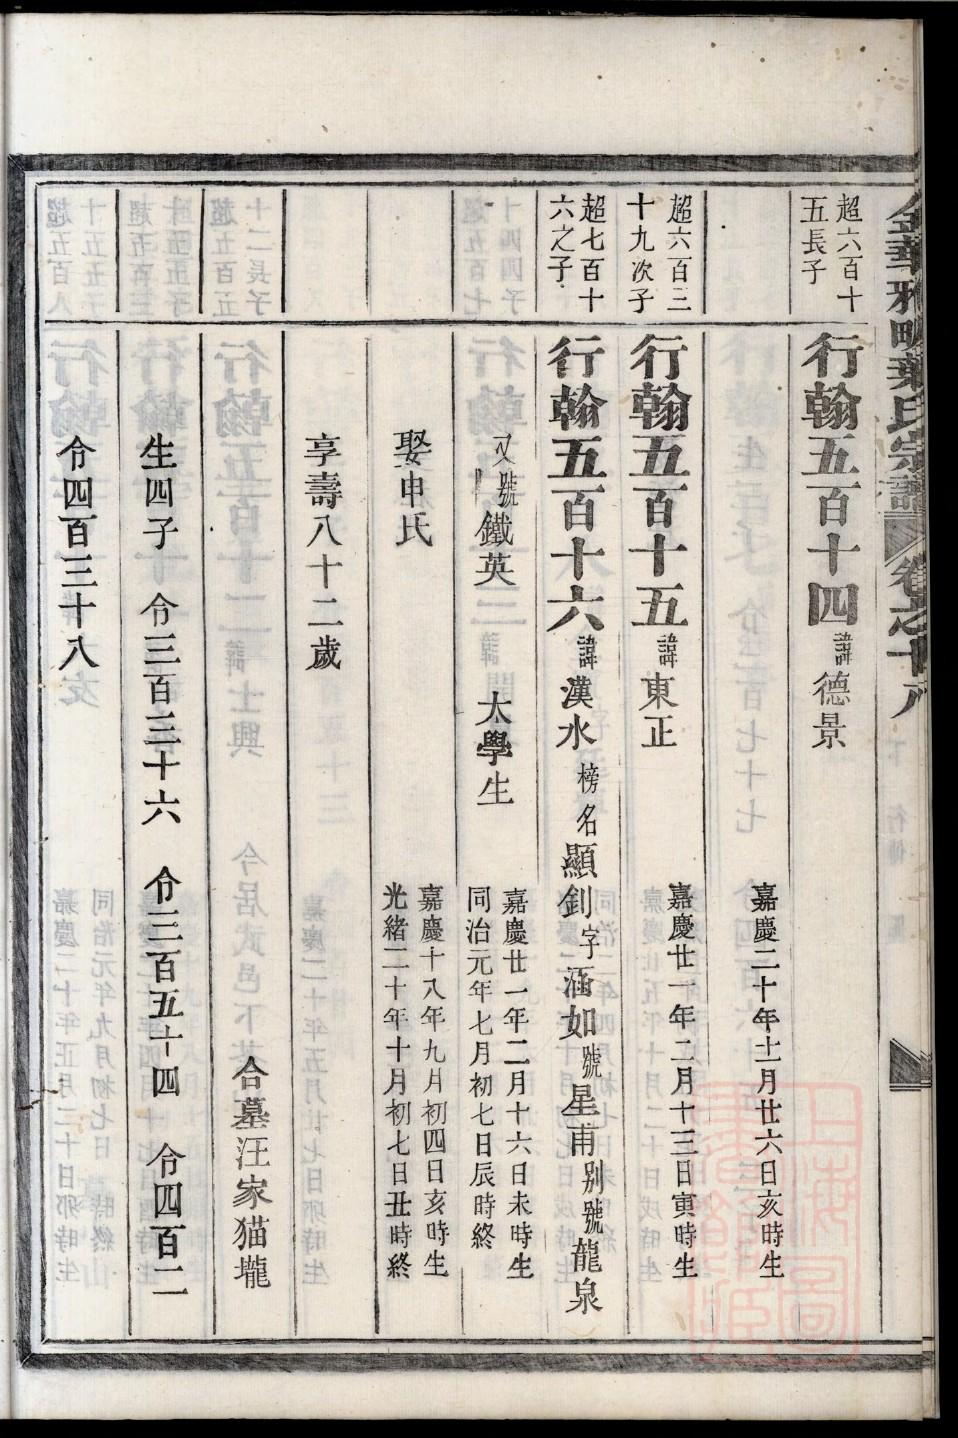 金華雅畈葉氏宗譜 卷之十八 下 行傳
超六百十
五長子
行翰五百十四 諱德景
嘉慶二十年十二月廿六日亥時生
超六百三
十九次子
行翰五百十五 諱東正
嘉慶廿一年二月十三日寅時生
超七百十
六之子
行翰五百十六 諱漢水 榜名顯釗字涵如號星甫别號龍泉
又號鐵英 太學生
嘉慶廿一年二月十六日未時生
同治元年七月初七日辰時終
娶申氏
嘉慶十八年九月初四日亥時生
光緒二十年十月初七日丑時終
享壽八十二歲
合墓汪家猫壠
生四子 令三百三十六 令三百五十四 令四百二
令四百三十八